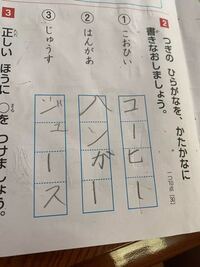 2 つぎの ひらがなを、かたかなに
書きなおしましょう。
一つ10点【30】
① こおひい
コーヒー
② はんがあ
ハンガー
③ じゅうす
ジュース
3 正しい ほうに ○を つけましょう。